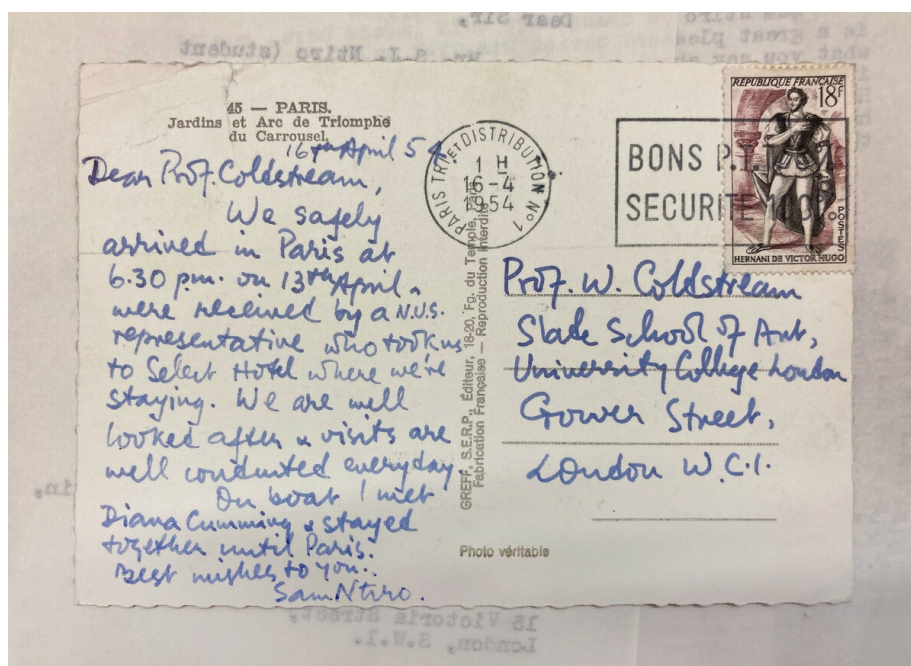 45 — PARIS.
Jardins et Arc de Triomphe
du Carrousel
16th April 54.
Dear Prof. Coldstream,
We safely
arrived in Paris at
6.30 p.m. on 13th April &
were received by a N.U.S.
representative who took us
to Select Hotel where we're
staying. We are well
looked after & visits are
well conducted everyday.
On boat I met
Diana Cumming & stayed
together until Paris.
Best wishes to you.
Sam Ntiro.
GREFF, S.E.R.P., Éditeur, 18-20, Fg. du Temple, Paris
Fabrication Française — Reproduction Interdite
Photo véritable
PARIS TRI ET DISTRIBUTION No 1
1 H
16-4
1954
BONS P.T.
SECURITE 100%
REPUBLIQUE FRANÇAISE
18F
POSTES
HERNANI DE VICTOR HUGO
Prof. W. Coldstream
Slade School of Art,
University College London
Gower Street,
London W.C.1.
Dear Sir,
Mr. S.J. Ntiro (student
is a great plea
what you say
15 Victoria Street,
London, S.W.1.